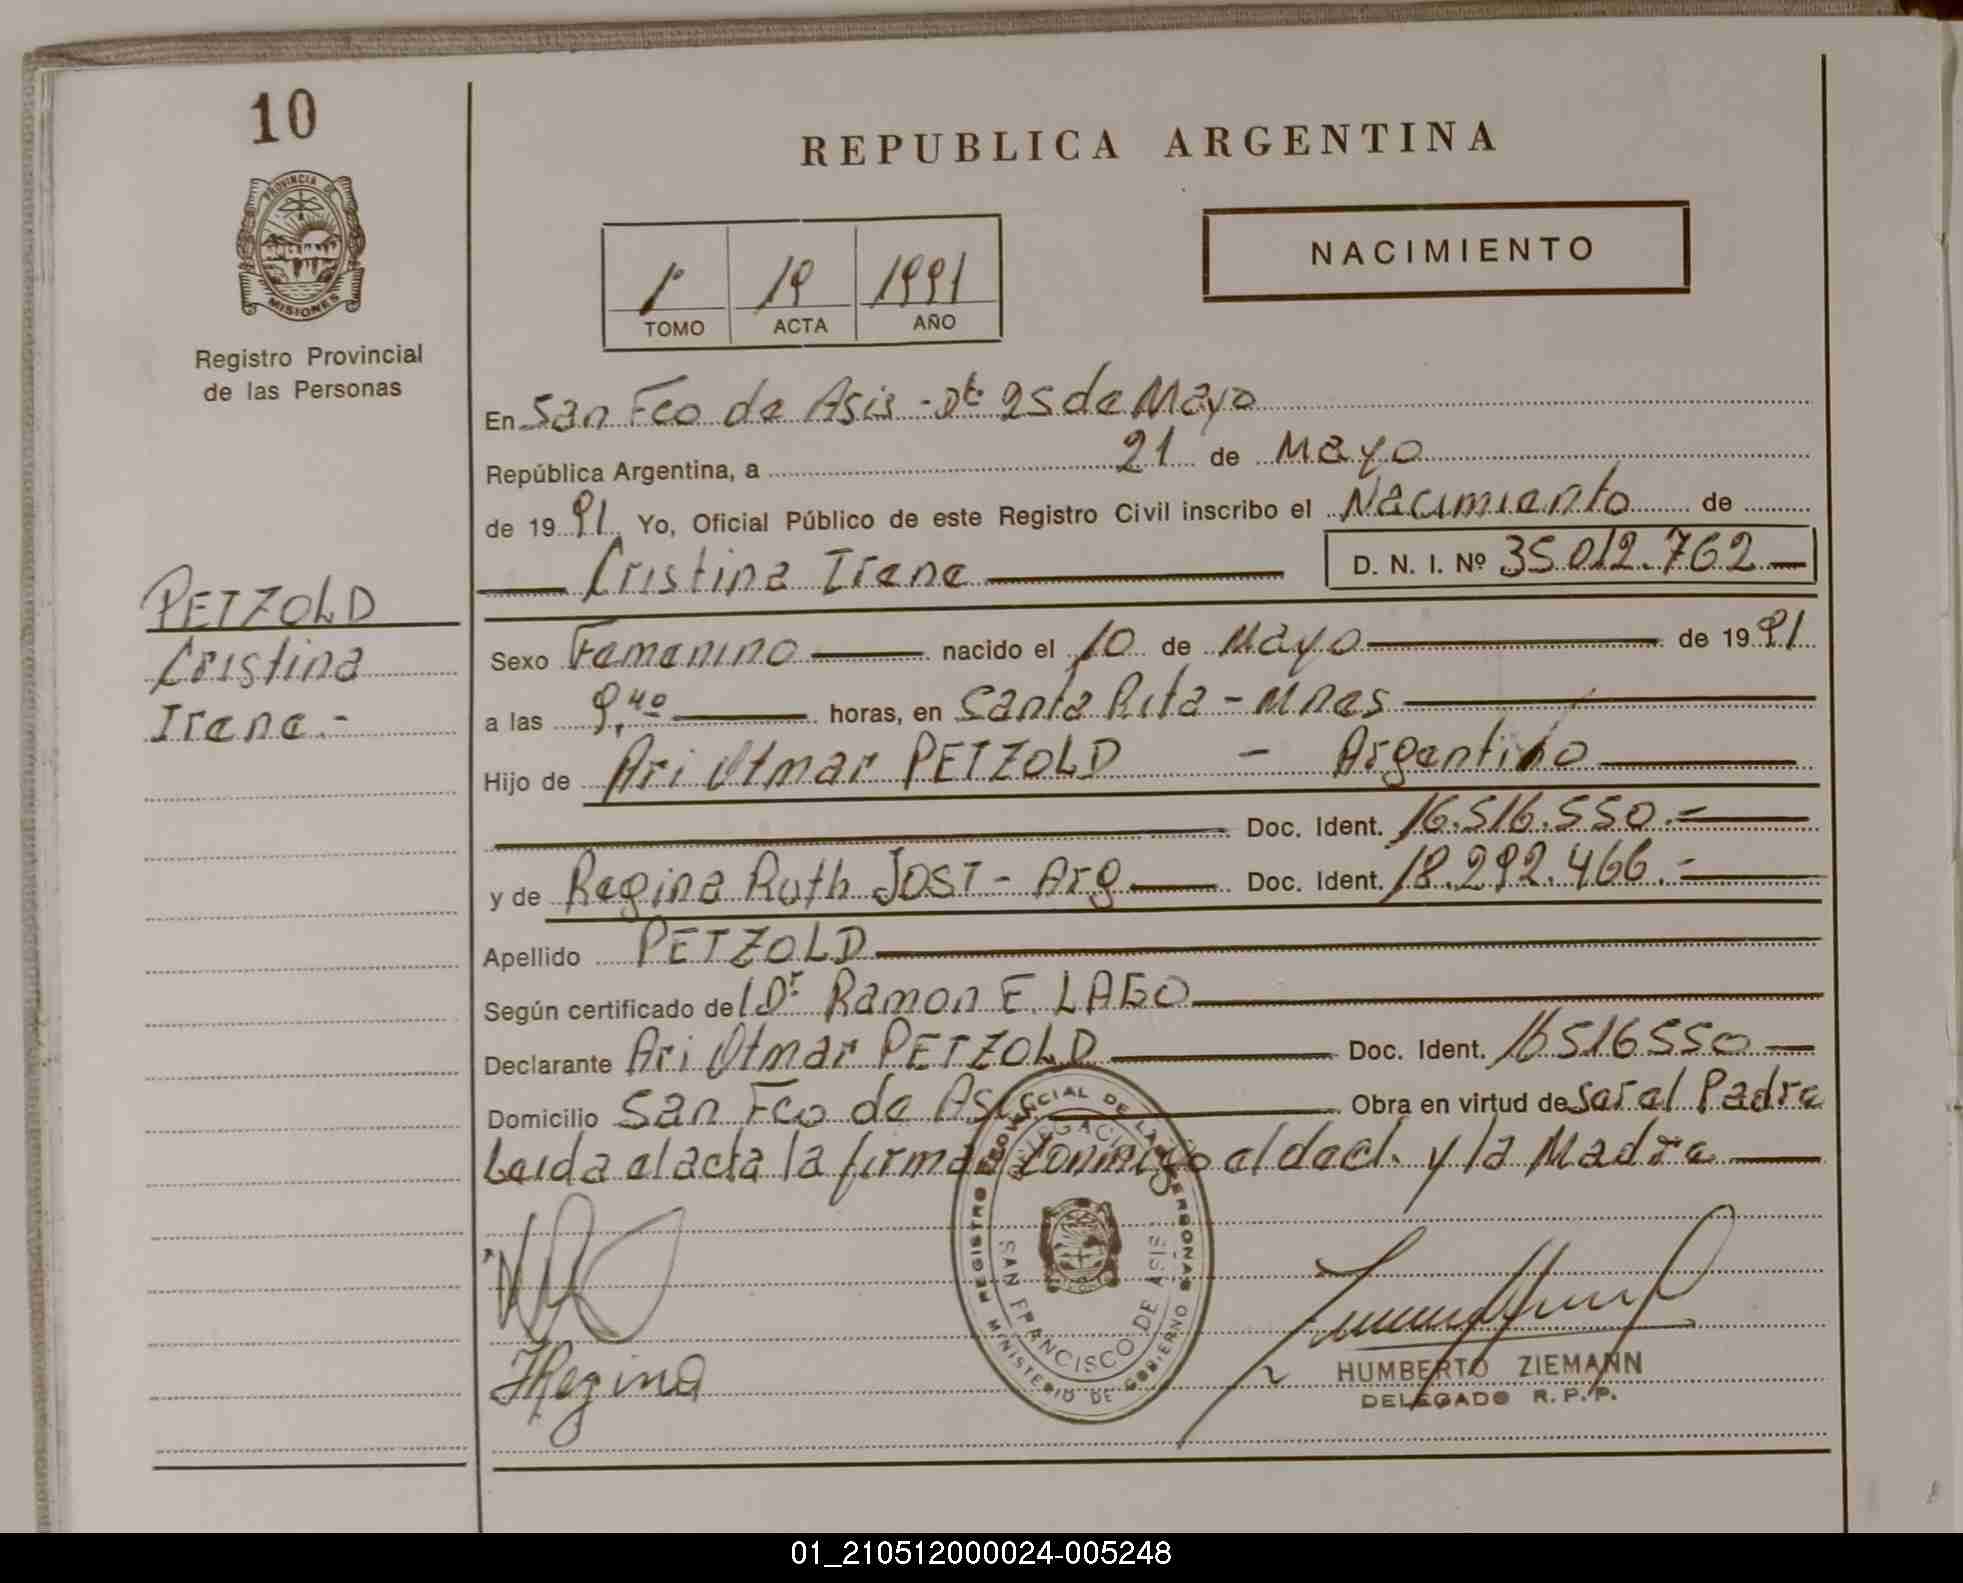 10
REPUBLICA ARGENTINA
PROVINCIA DE
MISIONES
Registro Provincial
de las Personas
NACIMIENTO
1º 19 1991
TOMO ACTA AÑO
En San Fco de Asis - Dto 25 de Mayo
República Argentina, a 21 de Mayo
de 1991 Yo, Oficial Público de este Registro Civil inscribo el Nacimiento de
Cristina Irene D. N. I. Nº 35.012.762
PETZOLD
Cristina
Irene.-
Sexo Femenino nacido el 10 de Mayo de 1991
a las 9,40 horas, en Santa Rita - Mnes
Hijo de Ari Otmar PETZOLD - Argentino
Doc. Ident. 16.516.550.=
y de Regina Ruth JOST - Arg Doc. Ident. 18.292.466.=
Apellido PETZOLD
Según certificado del Dr Ramon E. LAGO
Declarante Ari Otmar PETZOLD Doc. Ident. 16516550
Domicilio San Fco de Asis Obra en virtud de Ser el Padre
Leida el acta la firma conmigo el decl. y la Madre
REGISTRO PROVINCIAL DE LAS PERSONAS
MINISTERIO DE GOBIERNO
DELEGACION
SAN FRANCISCO DE ASIS
Regina
HUMBERTO ZIEMANN
DELEGADO R.P.P.
01_210512000024-005248